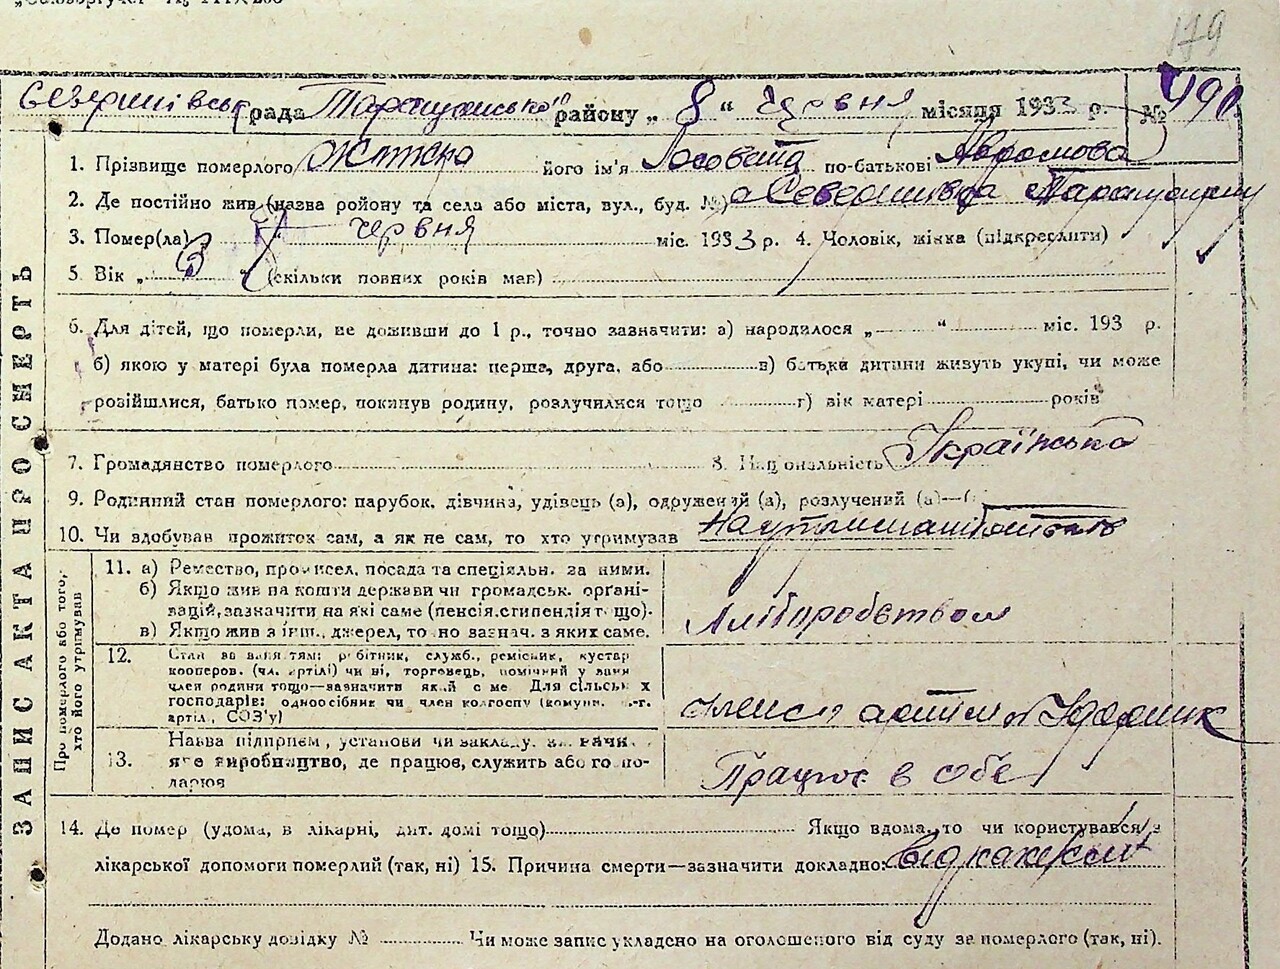 179
рада району „ 8 “ червня місяця 1933 р. № 490
1. Прізвище померлого його ім'я по-батькові Аврамова
2. Де постійно жив (назва ройону та села або міста, вул., буд. №)
3. Помер(ла) червня міс. 1933 р. 4. Чоловік, жінка (підкреслити)
5. Вік „ 3 “ (скільки повних років мав)
6. Для дітей, що померли, не доживши до 1 р., точно зазначити: а) народилося „ “ міс. 193 р.
б) якою у матері була померла дитина: перша, друга, або в) батьки дитини живуть укупі, чи може
розійшлися, батько помер, покинув родину, розлучилися тощо г) вік матері років
7. Громадянство померлого 8. Національність Українська
9. Родинний стан померлого: парубок, дівчина, удівець (а), одружений (а), розлучений (а)—
10. Чи здобував прожиток сам, а як не сам, то хто утримував
ЗАПИС АКТА ПРО СМЕРТЬ
Про померлого або того, хто його утримував
11. а) Ремество, промисел, посада та спеціяльн. за ними.
б) Якщо жив на кошти держави чи громадськ. органі-
зацій, зазначити на які саме (пенсія, стипендія тощо).
в) Якщо жив з інш. джерел, точно зазнач. з яких саме.
Хліборобством
12. Стан за заняттям: робітник, служб., ремісник, кустар
кооперов. (чл. артілі) чи ні, торговець, помічний у занят.
член родини тощо—зазначити який саме Для сільськ х
господарів: одноосібник чи член колгоспу (комуни, с.-г.
артіл., СОЗ'у)
член артілі
13. Назва підприєм., установи чи закладу,
яке виробництво, де працює, служить або госпо-
дарює
Працює в собе
14. Де помер (удома, в лікарні, дит. домі тощо) Якщо вдома, то чи користувався з
лікарської допомоги померлий (так, ні) 15. Причина смерти—зазначити докладно:
Додано лікарську довідку № Чи може запис укладено на оголошеного від суду за померлого (так, ні).